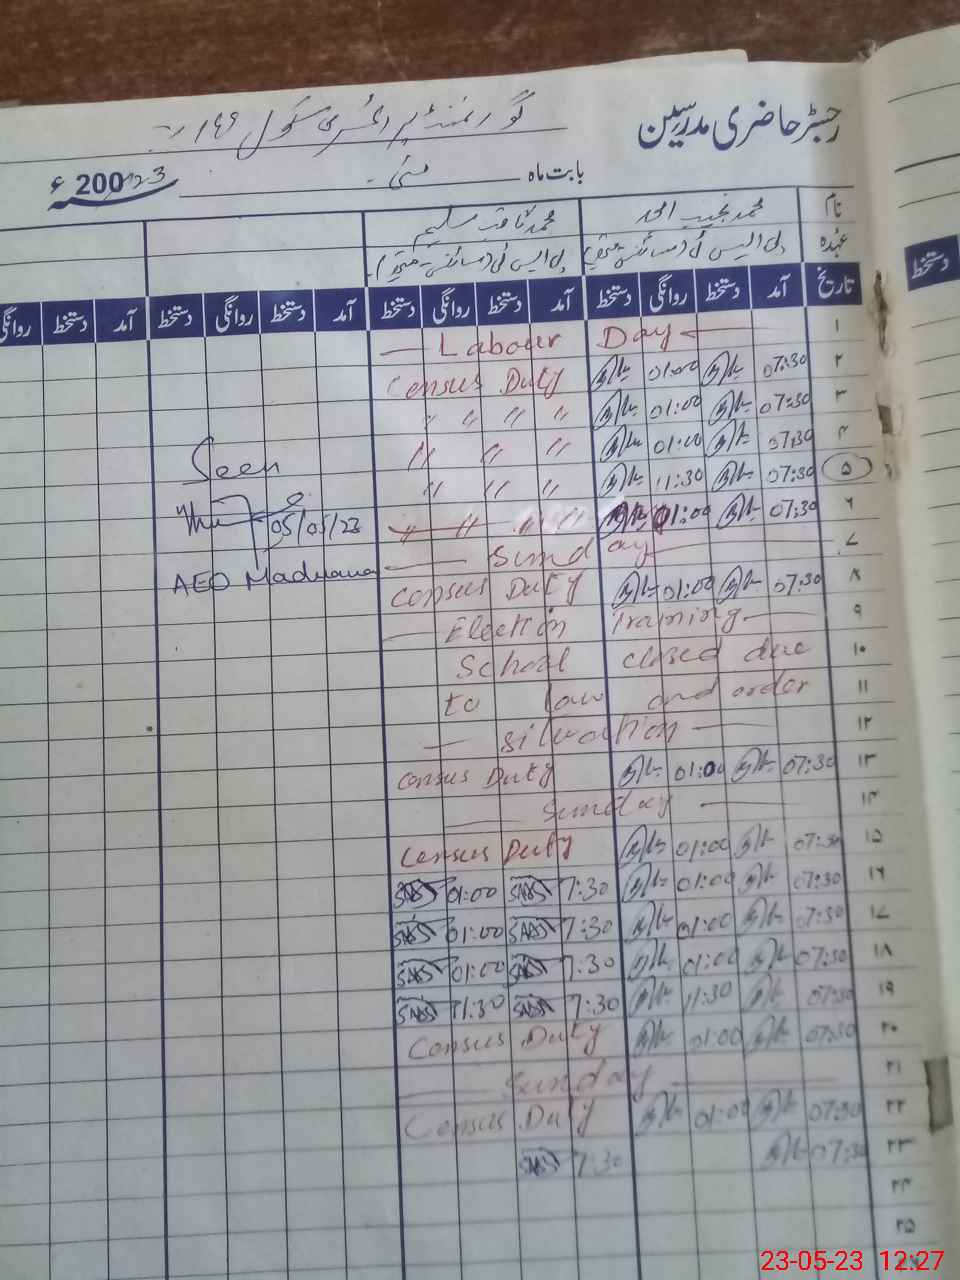 رجسٹر حاضری مدرسین گورنمنٹ پرائمری سکول
بابت ماہ مئی 2023ء
نام محمد نجیب احمد محمد ثاقب سلیم
عہدہ
تاریخ آمد دستخط روانگی دستخط آمد دستخط روانگی دستخط آمد دستخط روانگی دستخط آمد دستخط روانگی
دستخط
۱ Labour Day
۲ 07:30 01:00 Census Duty
۳ 07:30 01:00 〃 〃 〃 〃
۴ 07:30 01:00 〃 〃 〃
۵ 07:30 11:30 〃 〃 〃
۶ 07:30 01:00 〃 〃 〃 〃
۷ Sunday
۸ 07:30 01:00 Census Duty
۹ Election Training
۱۰ School closed due
۱۱ to law and order
۱۲ situation
۱۳ 07:30 01:00 Census Duty
۱۴ Sunday
۱۵ 07:30 01:00 Census Duty
۱۶ 07:30 01:00 7:30 01:00
۱۷ 07:30 01:00 7:30 01:00
۱۸ 07:30 01:00 7:30 01:00
۱۹ 07:30 11:30 7:30 11:30
۲۰ 07:30 01:00 Census Duty
۲۱ Sunday
۲۲ 07:30 01:00 Census Duty
۲۳ 07:30 7:30
۲۴
۲۵
Seen
05/05/23
AEO Madhana
23-05-23 12:27